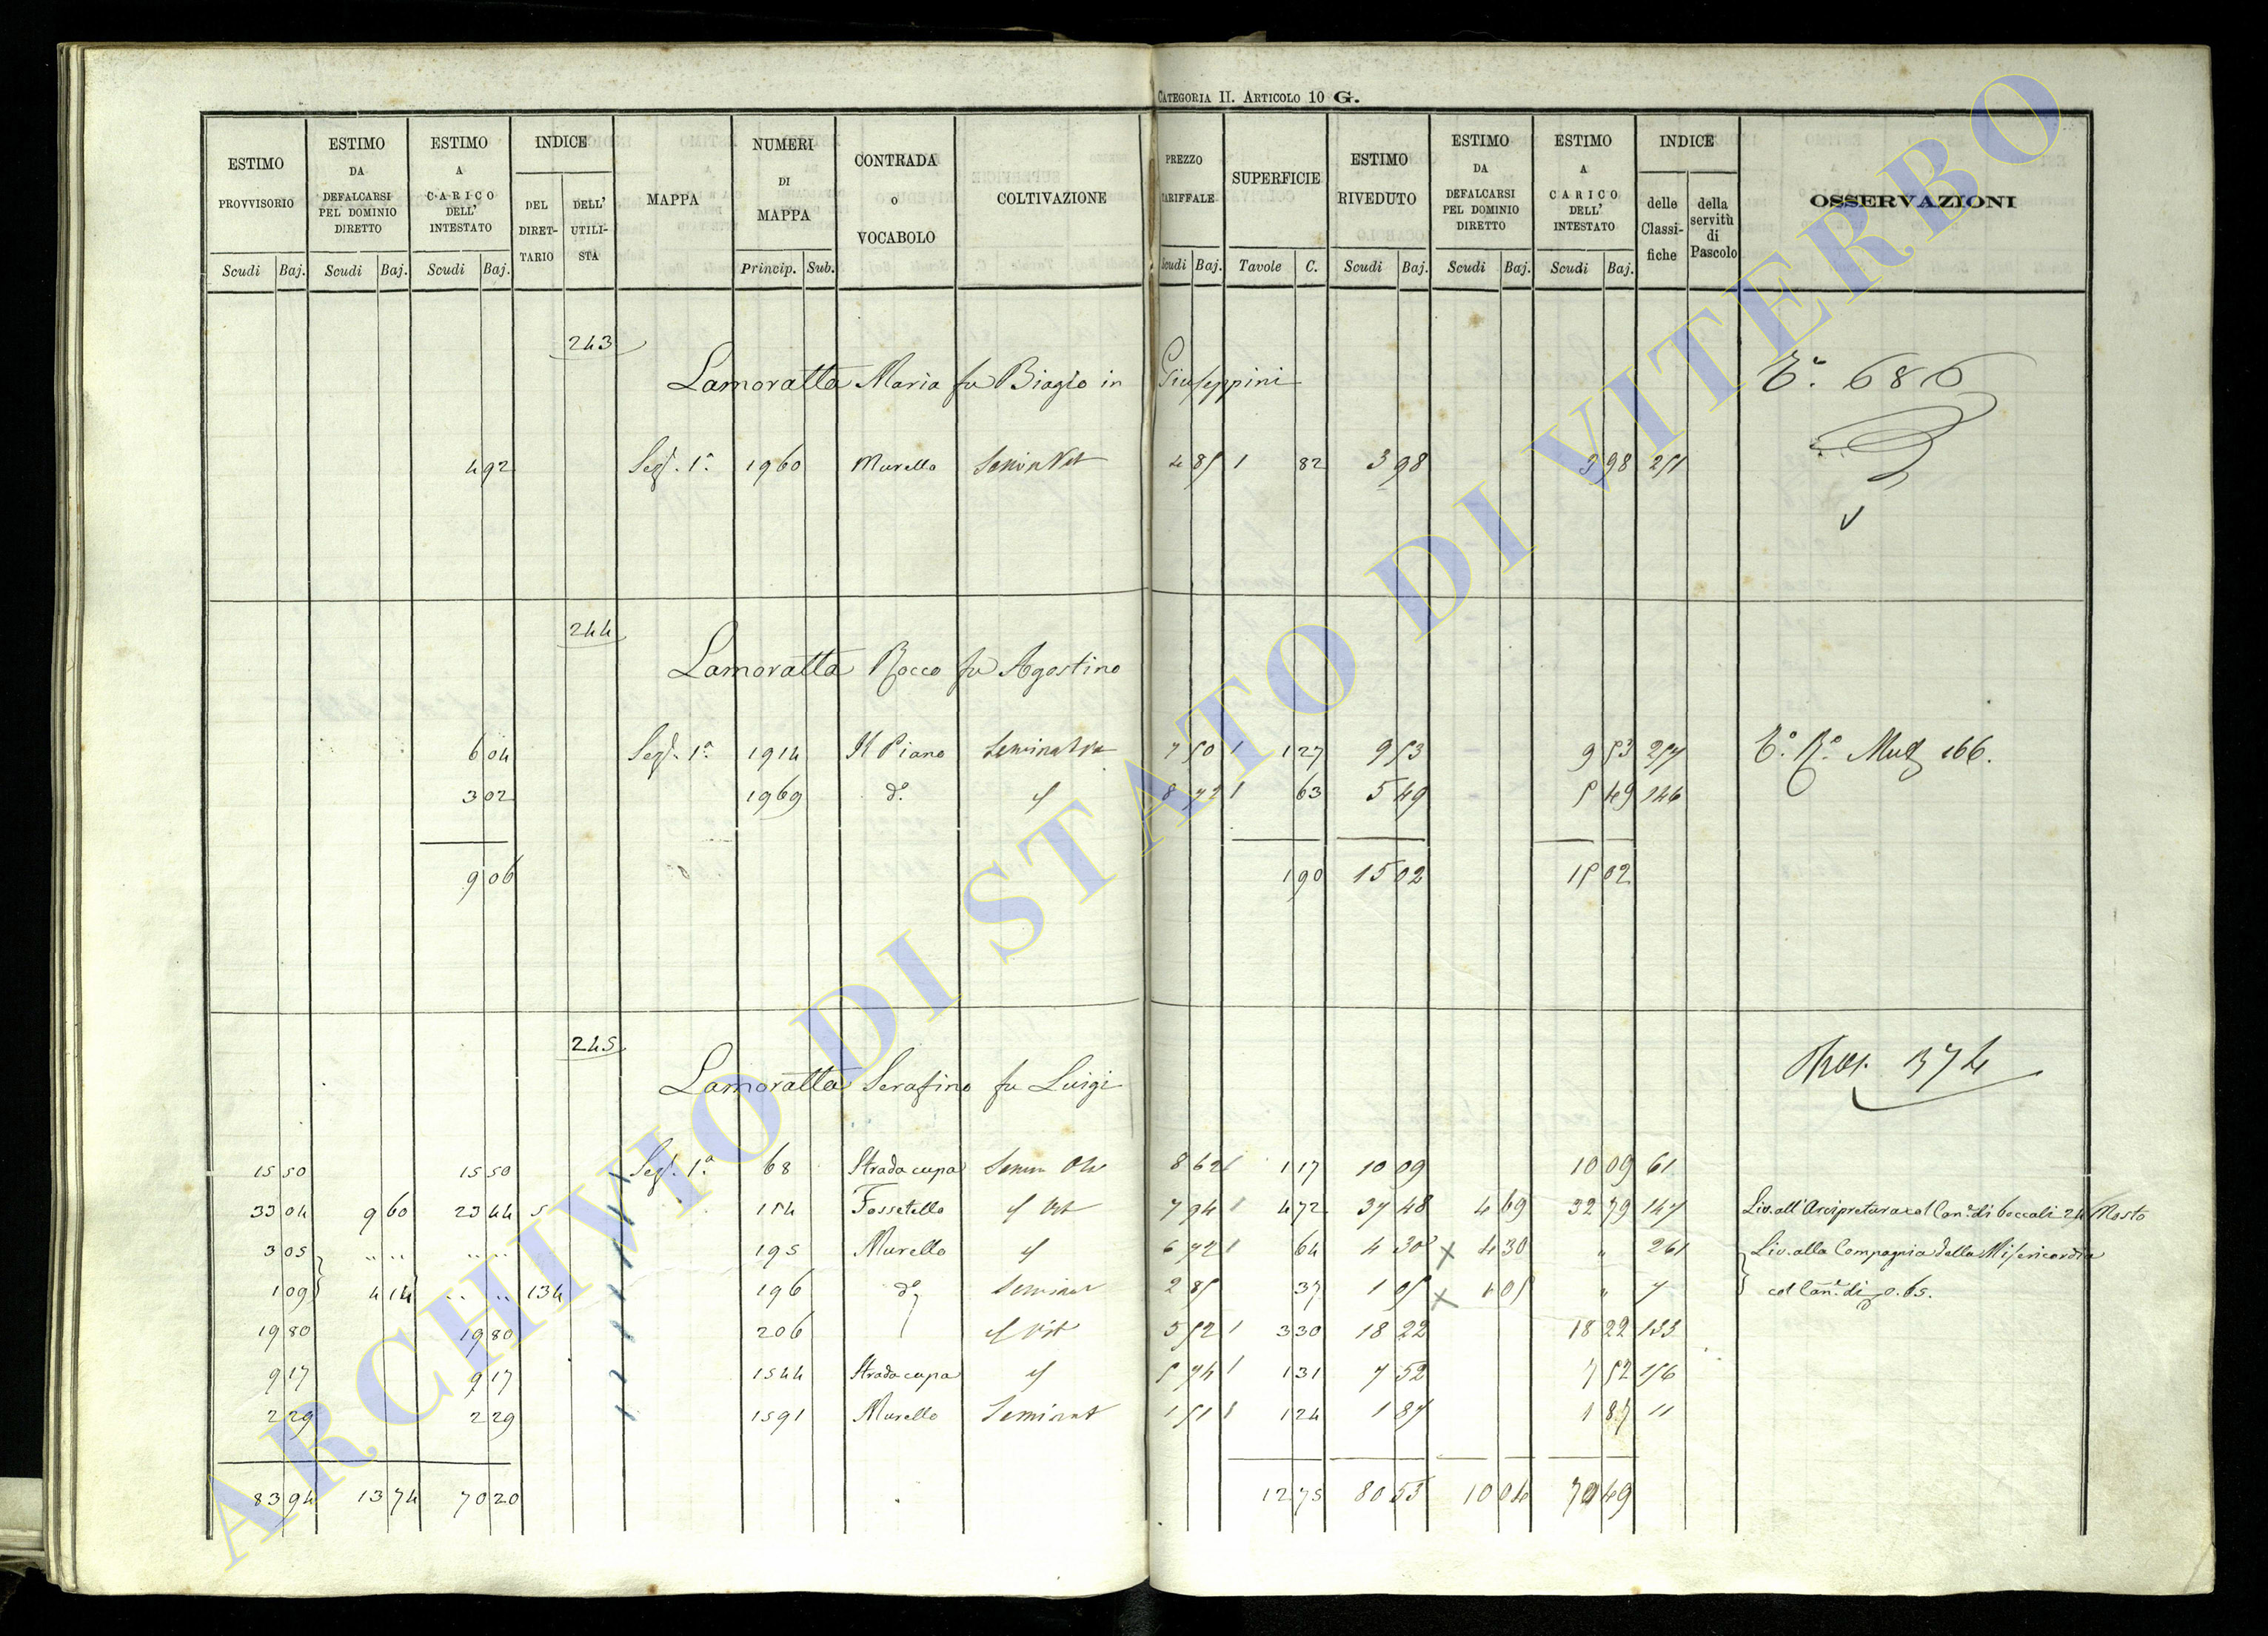 CATEGORIA II. ARTICOLO 10 G.
ESTIMO PROVVISORIO | ESTIMO DA DEFALCARSI PEL DOMINIO DIRETTO | ESTIMO A CARICO DELL' INTESTATO | INDICE | MAPPA | NUMERI DI MAPPA | CONTRADA O VOCABOLO | COLTIVAZIONE | PREZZO TARIFFALE | SUPERFICIE | ESTIMO RIVEDUTO | ESTIMO DA DEFALCARSI PEL DOMINIO DIRETTO | ESTIMO A CARICO DELL' INTESTATO | INDICE | OSSERVAZIONI
DEL DIRET-TARIO | DELL' UTILI-STA | delle Classi-fiche | della servitù di Pascolo
Scudi Baj. | Scudi Baj. | Scudi Baj. | Princip. Sub. | Scudi Baj. | Tavole C. | Scudi Baj. | Scudi Baj. | Scudi Baj.
243
Lamoratta Maria fu Biagio in Giuseppini 686
4 92 Sez. 1a. 1960 Murello 4 85 1 82 3 98 3 98 251
244
Lamoratta Rocco fu Agostino
6 04 Sez. 1a. 1914 Il Piano 7 50 1 1 27 9 53 9 53 257 166.
3 02 1969 do. 8 72 1 63 5 49 5 49 146
9 06 1 90 15 02 15 02
245
Lamoratta Serafino fu Luigi 374
15 50 15 50 Sez. 1a. 68 Strada cupa 8 62 1 1 17 10 09 10 09 61
33 04 9 60 23 44 5 154 Fossetello 7 94 1 4 72 37 48 4 69 32 79 147 Liv. all'Arcipretura col Can. di boccali 24 Mosto
3 05 195 Murello 6 72 1 64 4 30 4 30 " 261 Liv. alla Compagnia della Misericordia
1 09 4 14 134 196 do 2 85 37 1 05 1 05 " 7 col Can. di 0.65.
19 80 19 80 206 5 52 1 3 30 18 22 18 22 133
9 17 9 17 1544 Strada cupa 5 74 1 1 31 7 52 7 52 156
2 29 2 29 1591 Murello Seminat 1 51 1 1 24 1 87 1 87 11
83 94 13 74 70 20 12 75 80 53 10 04 70 49
ARCHIVIO DI STATO DI VITERBO